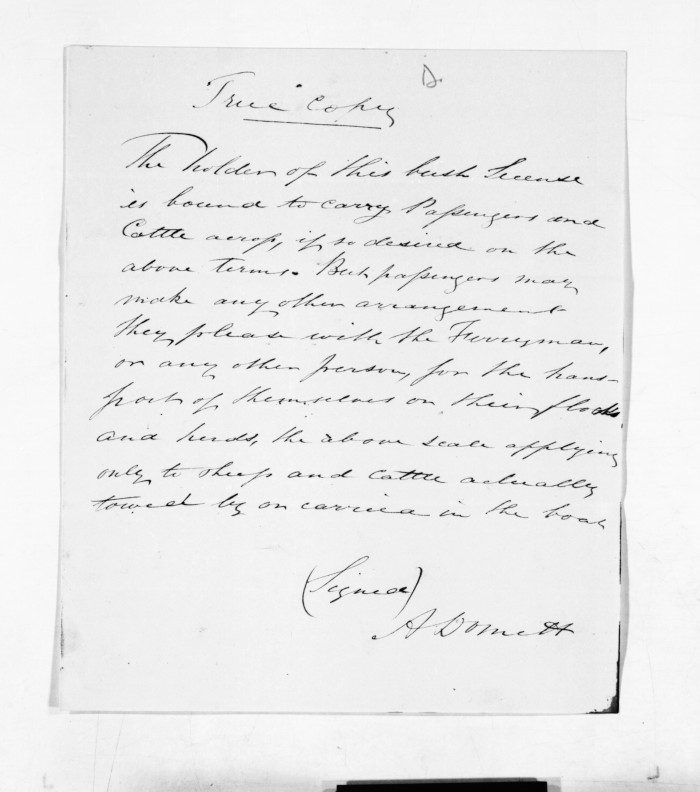 D.
True Copy
The holder of this bush License
is bound to carry Passengers and
Cattle across, if so desired on the
above terms. But passengers may
make any other arrangement
they please with the Ferryman,
or any other person, for the trans-
port of themselves or their flocks
and herds, the above scale applying
only to sheep and cattle actually
towed by or carried in the boat
(Signed)
A Domett